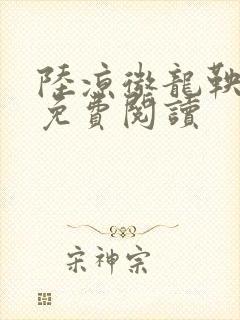 陸凉微龍鞅
免費閱讀
宋神宗